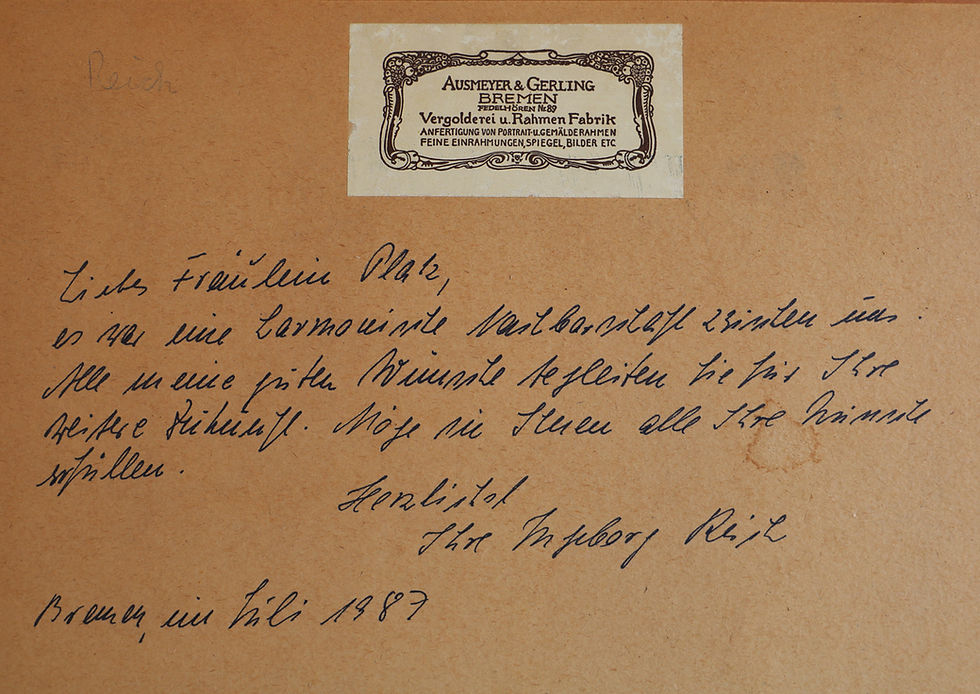 Reich
AUSMEYER & GERLING
BREMEN
FEDELHÖREN Nr. 89
Vergolderei u. Rahmen Fabrik
ANFERTIGUNG VON PORTRAIT-U. GEMÄLDERAHMEN
FEINE EINRAHMUNGEN, SPIEGEL, BILDER ETC
Liebes Fräulein Platz,
es war eine harmonische Nachbarschaft zwischen uns.
Alle meine guten Wünsche begleiten Sie für Ihre
weitere Zukunft. Möge sie Ihnen alle Ihre Wünsche
erfüllen.
Herzlichst
Ihre Ingeborg Reich
Bremen, im Juli 1987